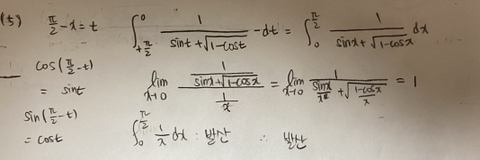 (5) π/2 - x = t ∫_{+π/2}^{0} 1/(sint + √(1-cost)) - dt = ∫_0^{π/2} 1/(sinx + √(1-cosx)) dx
cos(π/2 - t)
= sint
lim_{x→0} (1/(sinx + √(1-cosx)))/(1/x) = lim_{x→0} 1/(sinx/x + √(1-cosx)/x) = 1
sin(π/2 - t)
= cost
∫_0^{π/2} 1/x dx : 발산 ∴ 발산